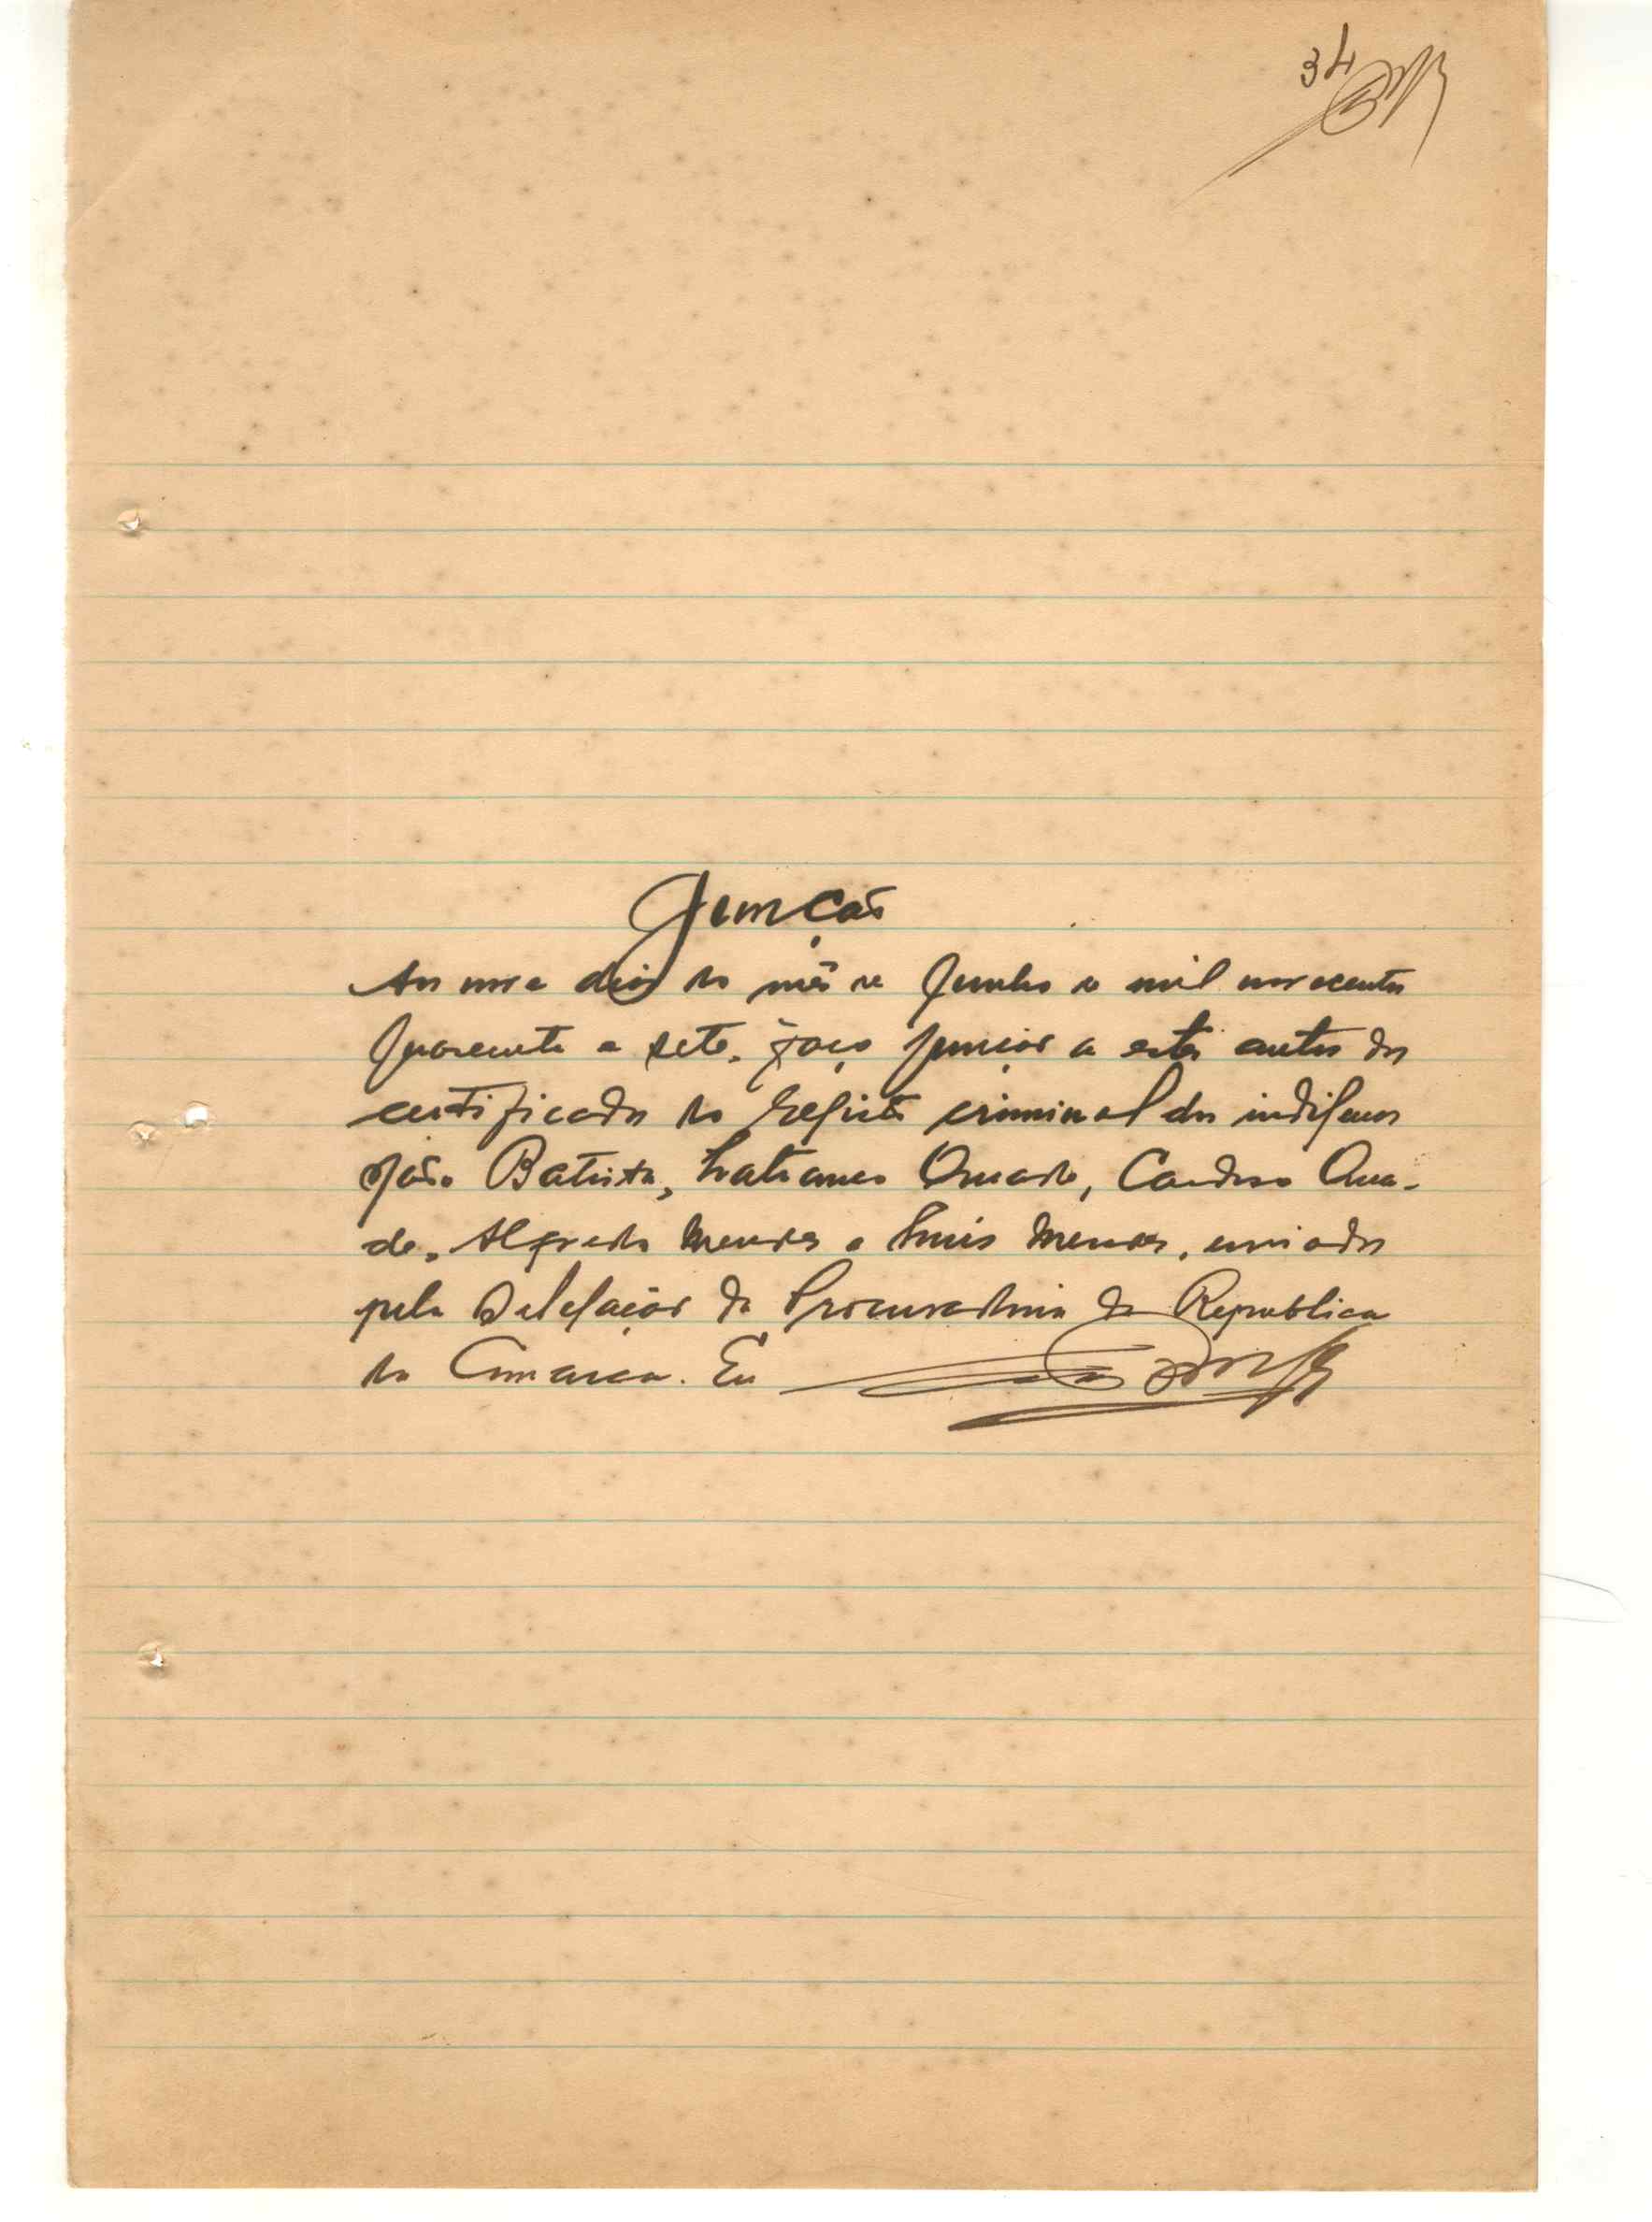 34
Junção
Aos nove dias do mês de Junho de mil novecentos
quarenta e sete, faço junção a estes autos dos
certificados do registo criminal dos indígenas
João Batista, Cardoso Qua-
de, Alfredo Mendes e Luis Mendes, enviados
pela Delegação da Procuradoria da Republica
da Comarca. Eu